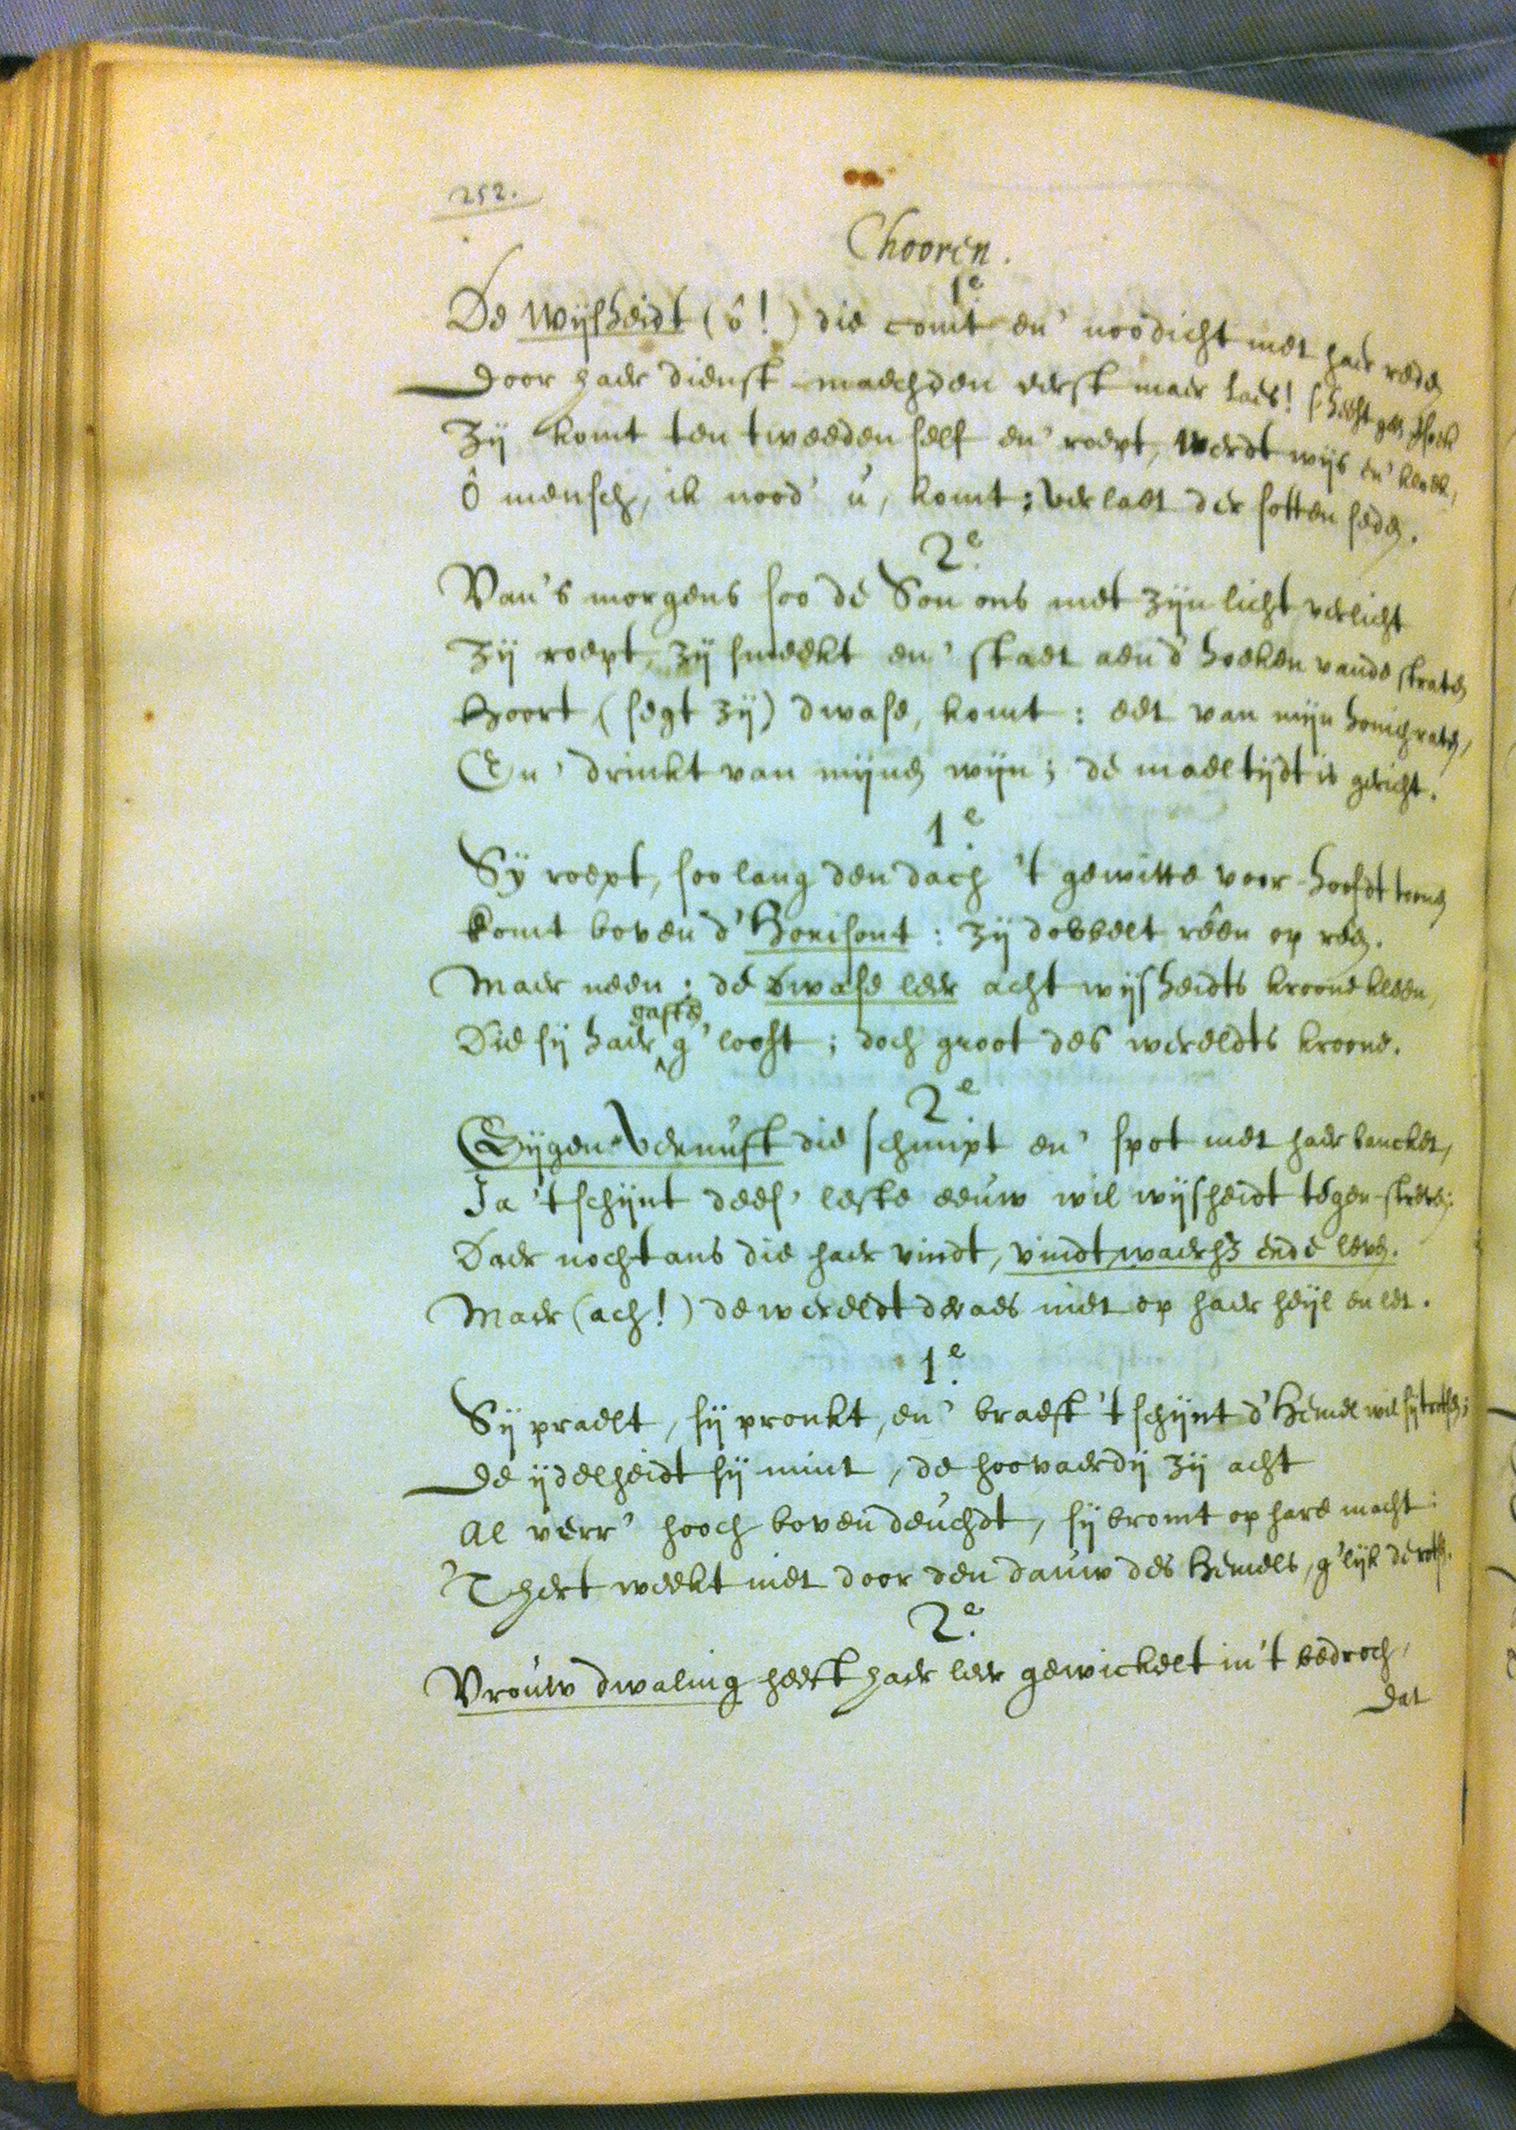 252.
Chooren.
1e.
De Wijsheidt (ô!) die comt en' noodicht met haer reden
Door haer dienst-maechden eerst maer laes! s'heeft geen
Zij komt ten tweeden self en' roept, Werdt wijs en' kloek,
Ô mensch, ik nood' u, komt: verlaet der sotten seden.
2e.
Van 's morgens soo de Son ons met zijn licht verlicht
Zij roept, zij smeekt en' staet aen d' hoeken vande straten
Hoort (segt zij) dwase, komt: eet van mijn honichraten,
En' drinkt van mijnen wijn; de maeltijdt is gericht.
1e.
Sy roept, soo lang den dach 't gewitte voor-hooft toone
Komt boven d' Horisont: zij dobbelt rêen op rêen.
Maer neen: de dwase leer acht wijsheidts kroone kleen,
Die sij haer gasten g'looft; doch groot des wereldts kroone.
2e.
Eijgen-Vernuft die schimpt en' spot met haer bancket,
Ja 't schijnt dees' leste eeuw wil wijsheidt tegen-streven:
Daer nochtans die haer vindt, vindt waerh3 ende leven.
Maer (ach!) de wereldt dwaes niet op haer heijl en let.
1e.
Sij praelt, sij pronkt, en' braest 't schijnt d' Hemel wil sij trotsen;
De ijdelheidt sij mint, de hoovaerdij zij acht
Al verr' hooch boven deuchdt, sij bromt op hare macht:
'T hert weekt niet door den dauw des Hemels, g'lijk de rotsen.
2e.
Vrouw dwaling heeft haer leer gewickelt in 't bedroch,
Dat